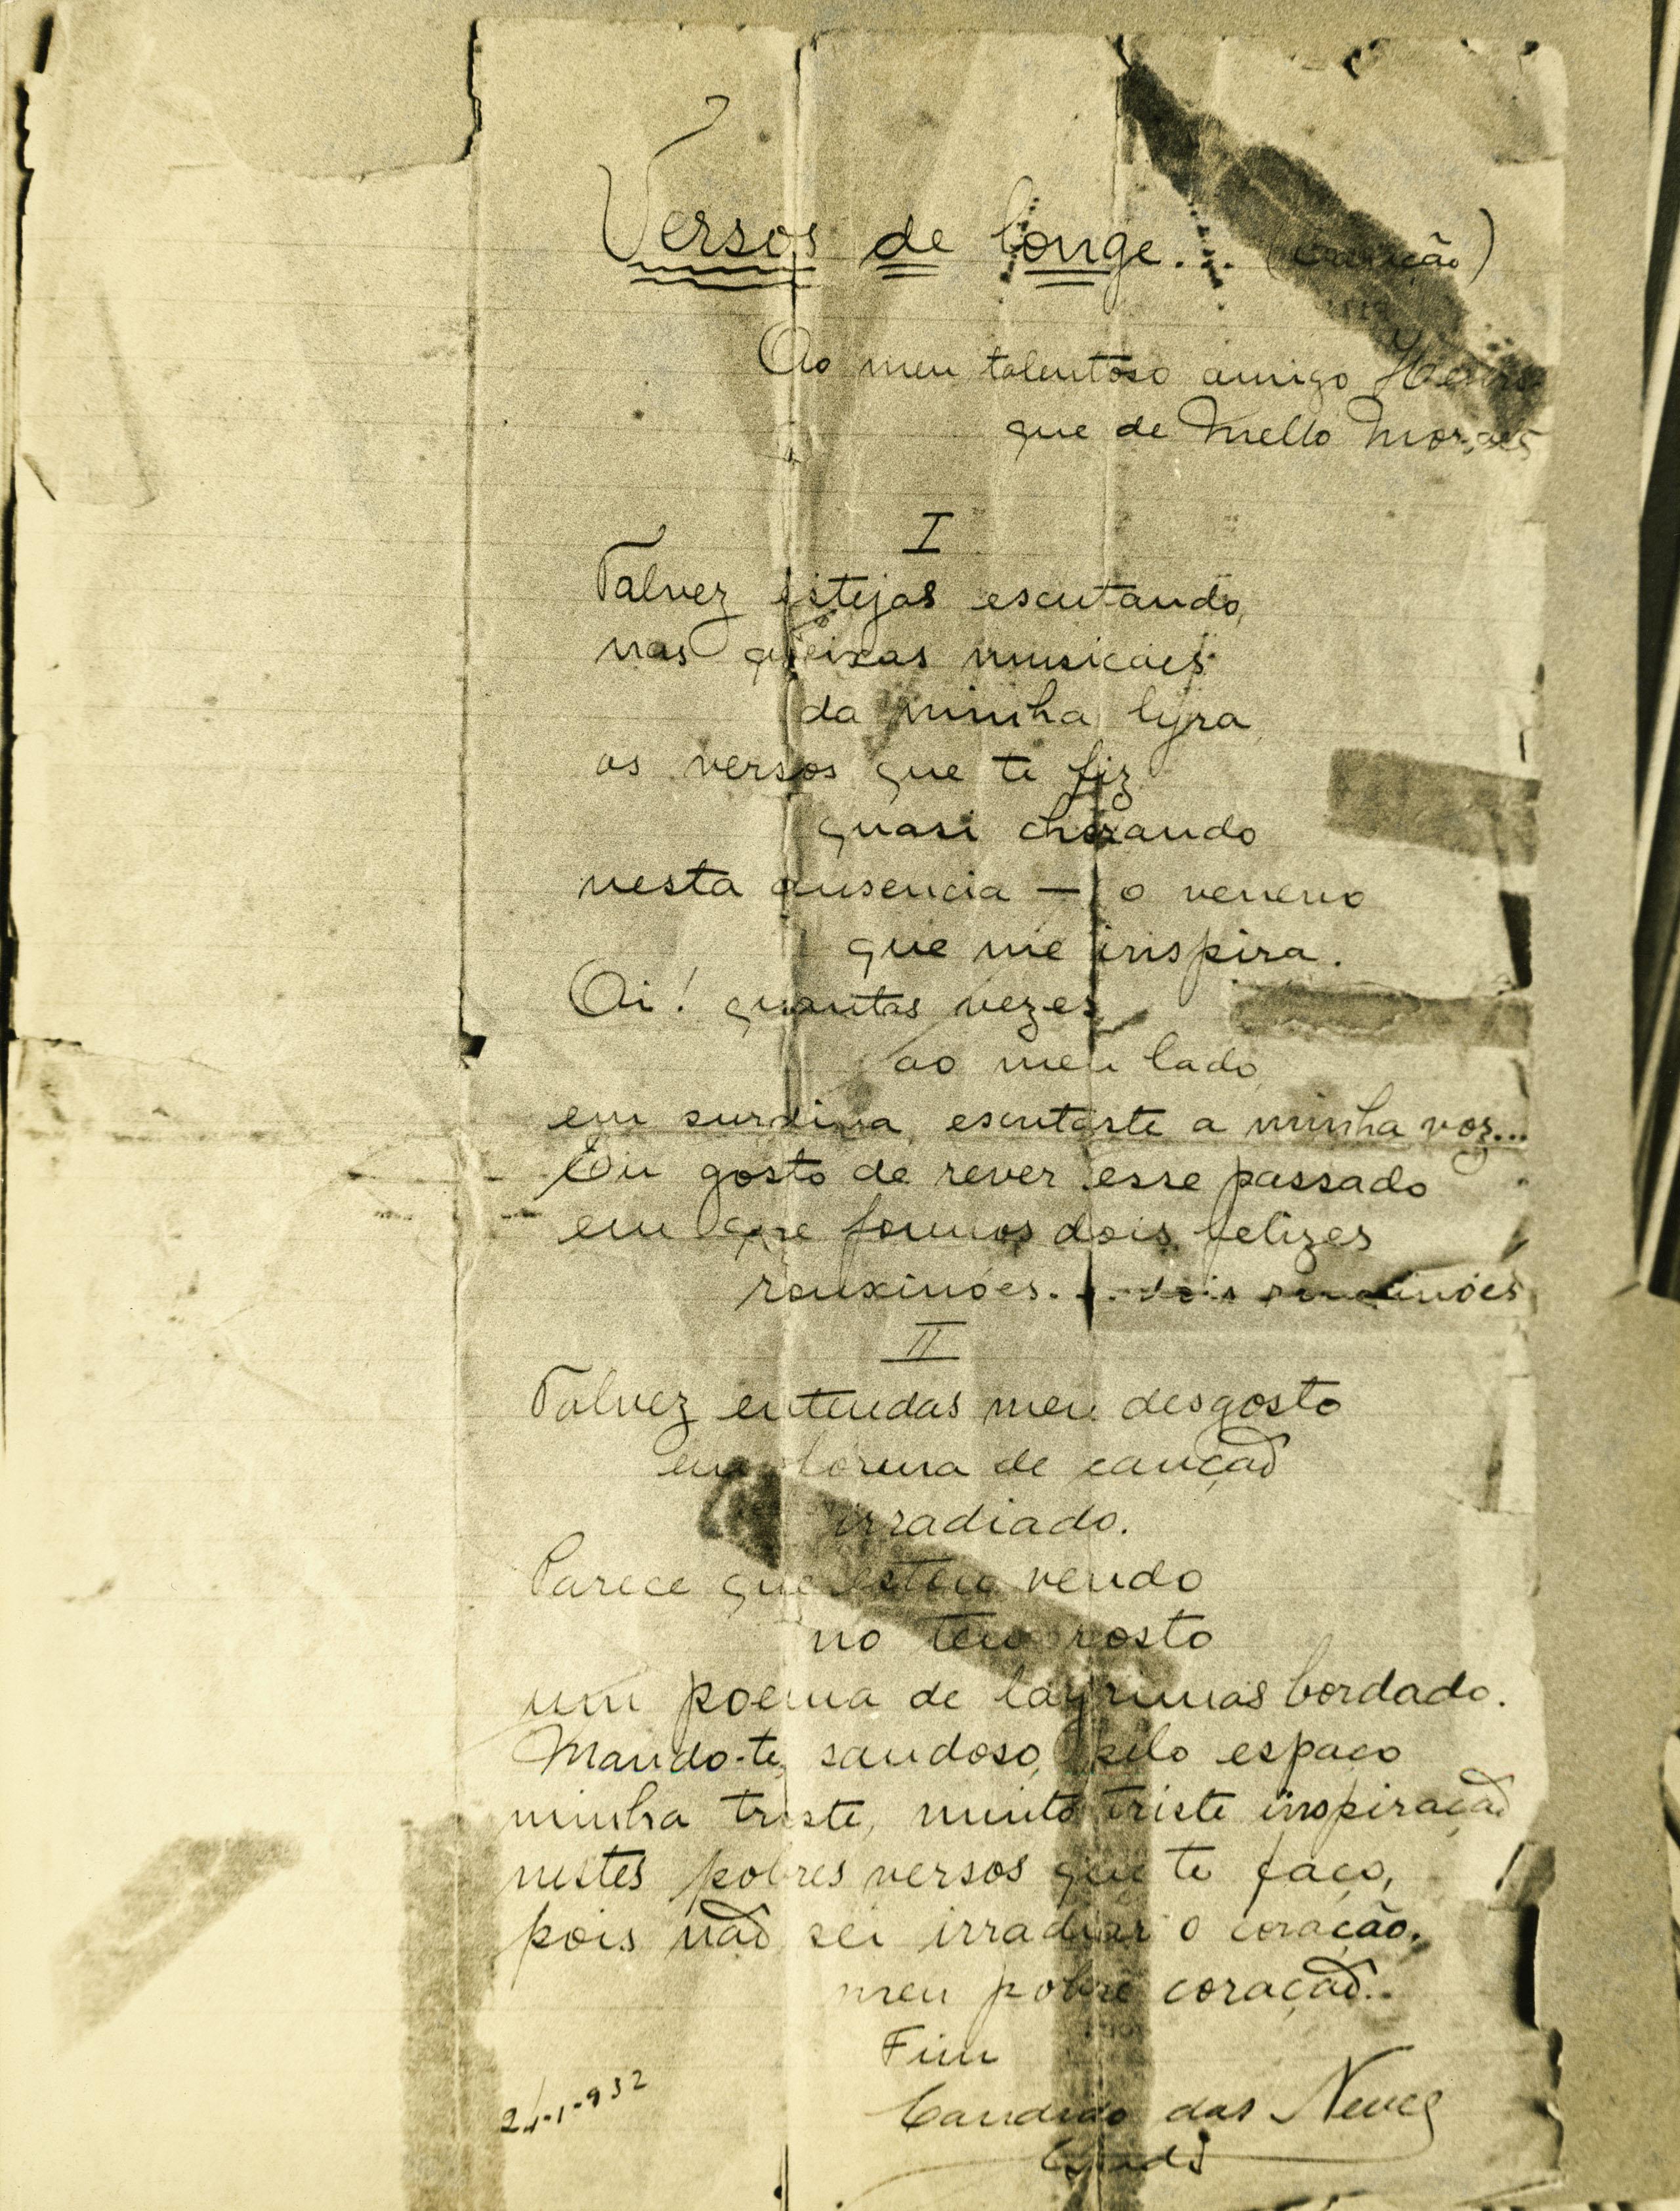 Versos de longe... (canção)
Ao meu talentoso amigo Henri-
que de Mello Moraes
I
Talvez estejas escutando,
nas queixas musicaes
da minha lyra
os versos que te fiz
quasi chorando
nesta ausencia — o veneno
que me inspira.
Ai! quantas vezes
ao meu lado
em surdina, escutaste a minha voz...
Eu gosto de rever esse passado
em que fomos dois felizes
rouxinóes... dois rouxinóes
II
Talvez entendas meu desgosto
em forma de canção
irradiado.
Parece que estou vendo
no teu rosto
um poema de lagrimas bordado.
Mando-te, saudoso, pelo espaço
minha triste, muito triste inspiração
nestes pobres versos que te faço,
pois não sei irradiar o coração,
meu pobre coração...
Fim
-1-932
Candido das Neves